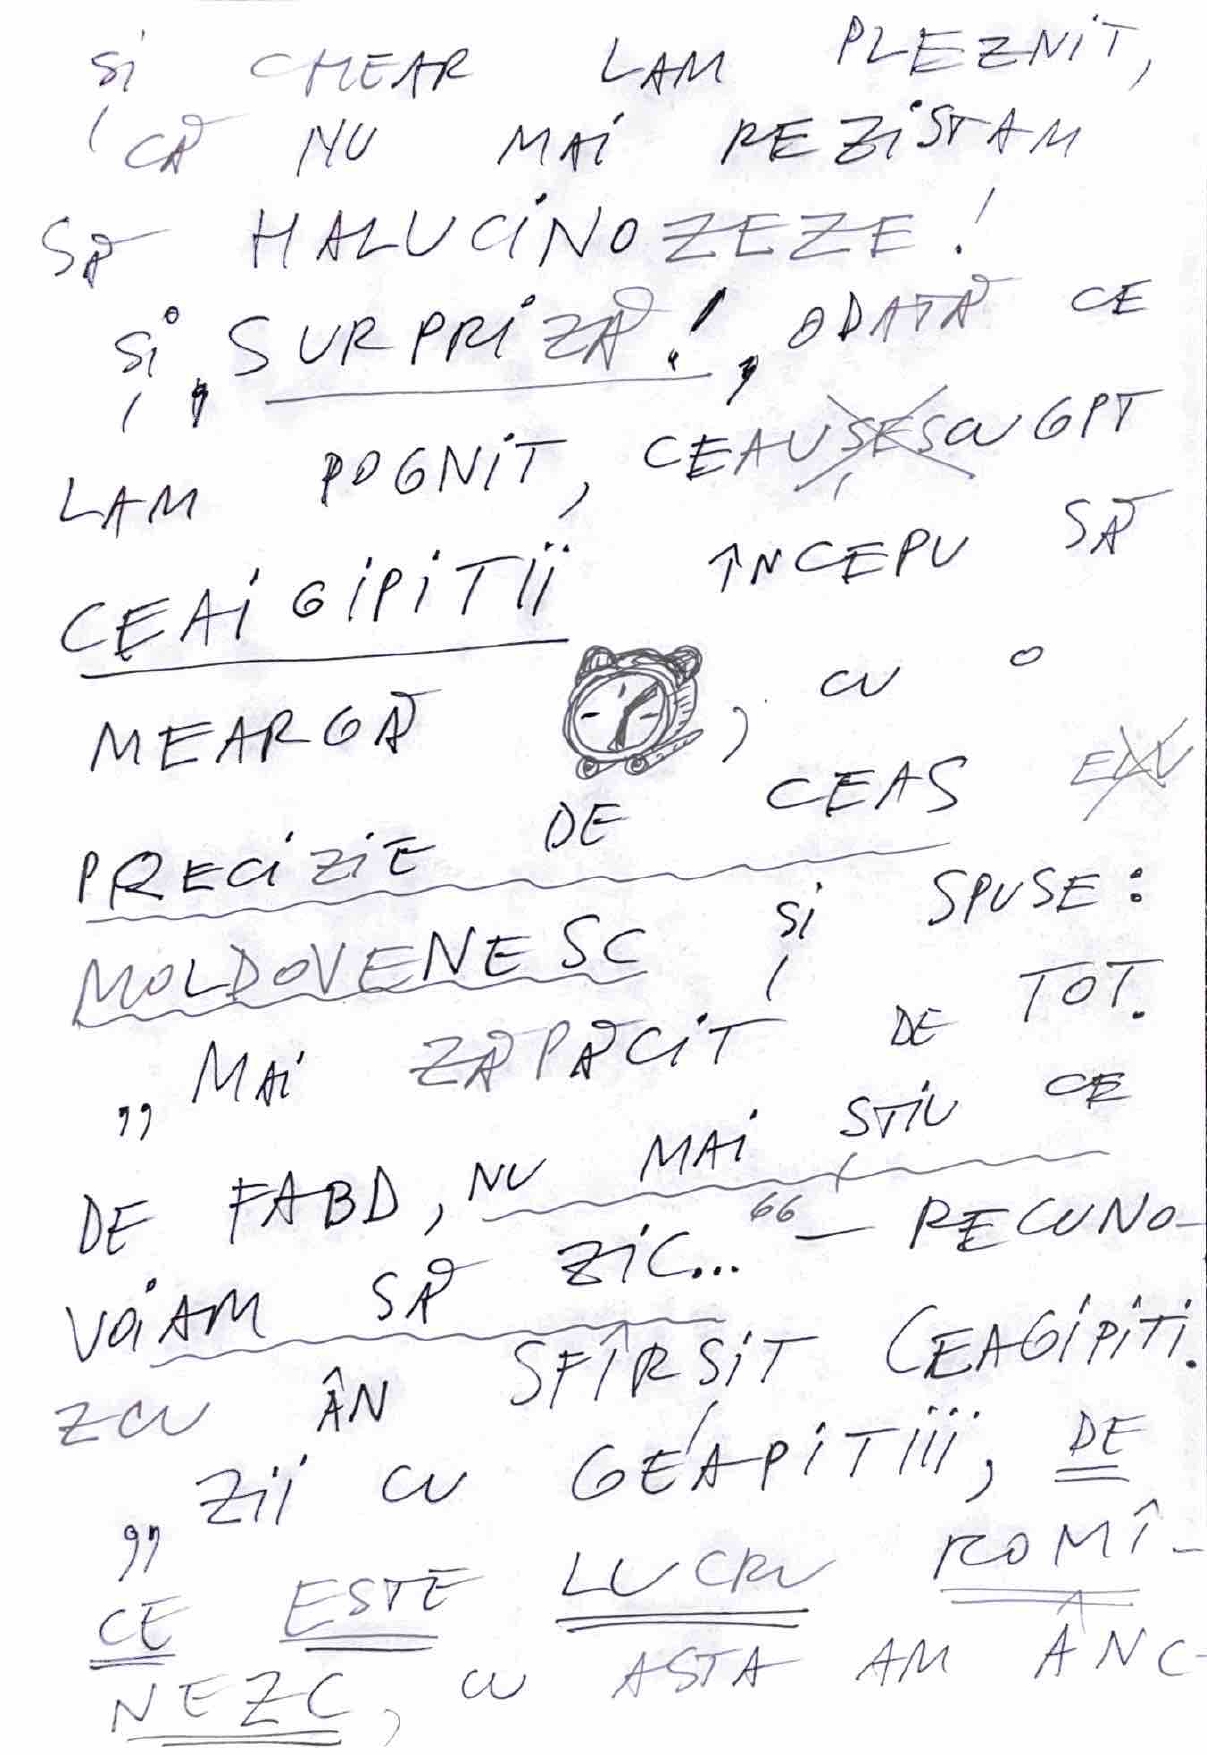 ȘI CHEAR LAM PLEZNIT,
CĂ NU MAI REZISTAM
SĂ HALUCINOZEZE!
ȘI, SURPRIZĂ!, ODATĂ CE
LAM POGNIT, CEAUȘESCUGPT
CEAIGIPITII ÎNCEPU SĂ
MEARGĂ , CU O
PRECIZIE DE CEAS
MOLDOVENESC ȘI SPUSE:
„MAI ZĂPĂCIT DE TOT.
DE FABD, NU MAI ȘTIU CE
VOIAM SĂ ZIC..." — RECUNO-
ZCU ÂN SFÎRȘIT CEAGIPITI.
„ZII CU GEAPITIII, DE
CE ESTE LUCRU ROMÎ-
NEZC, CU ASTA AM ÂNC-